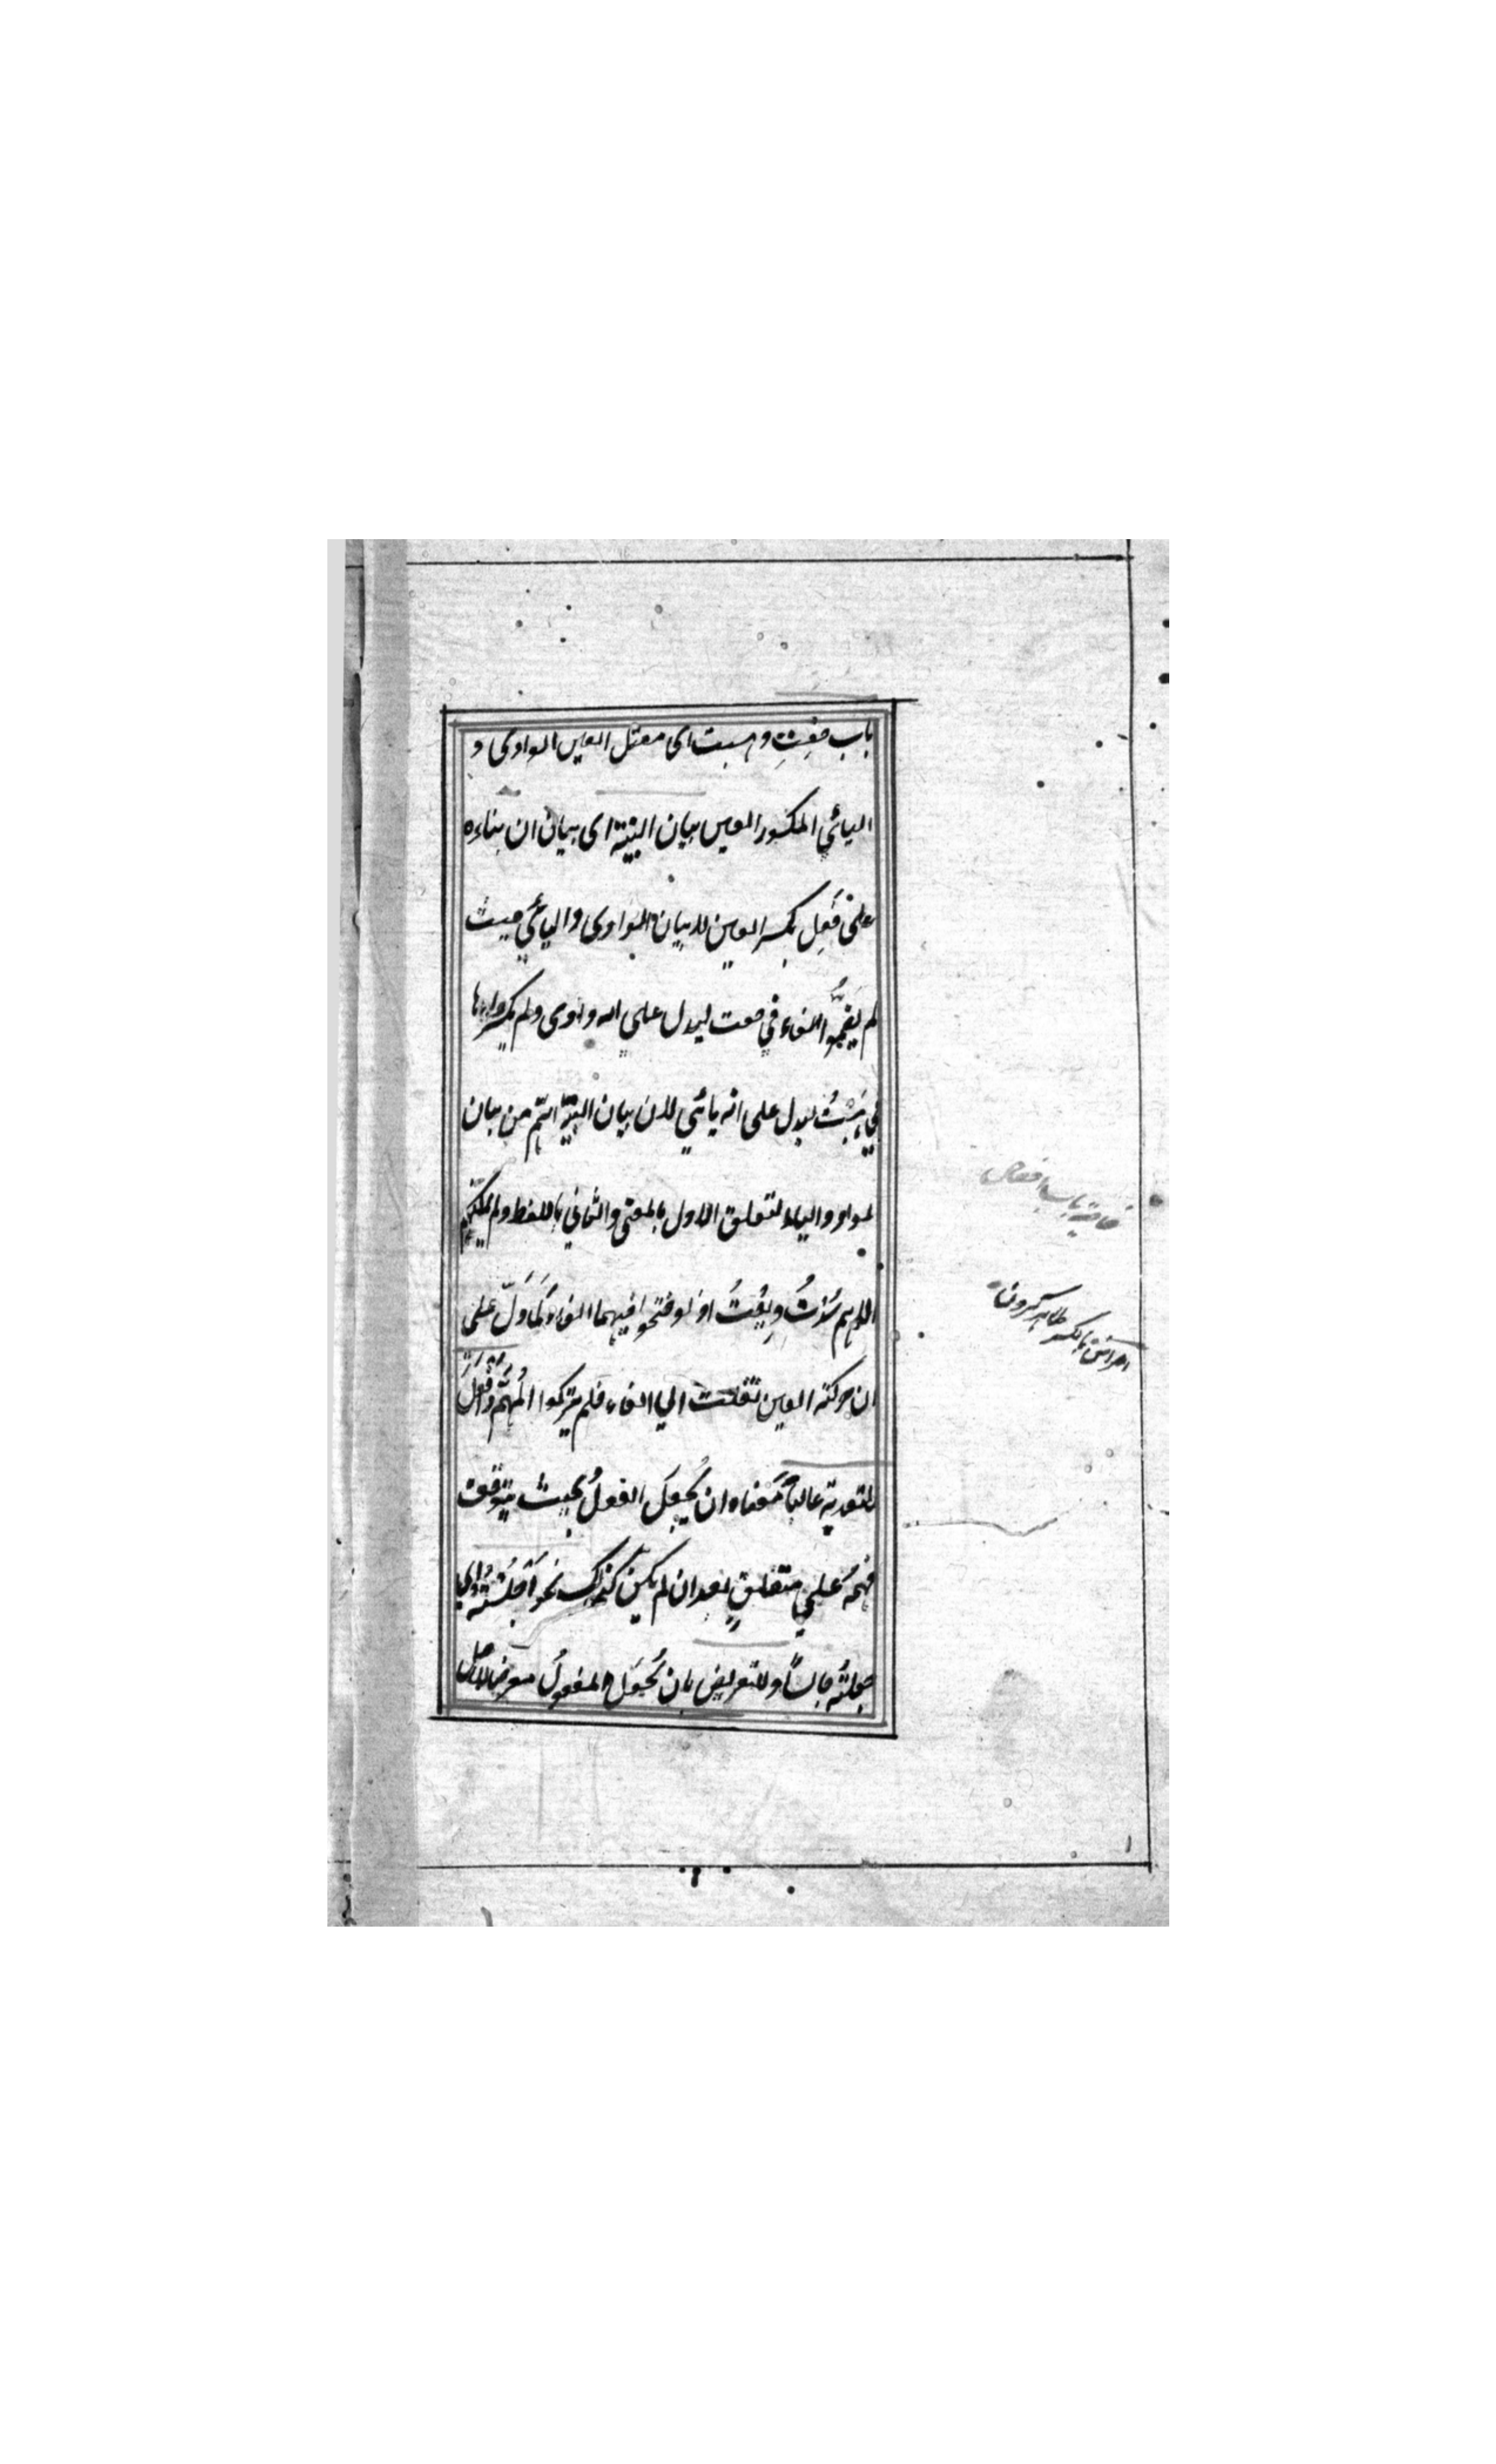 باب خفت وهبت اى معتل العين الواوى و
اليائي المكسور العين بيان البنية اى بيان ان بناءه
على فَعِل بكسر العين لا بيان الواوى واليائي حيث
لم يضمُّوا الفاء في خفت ليدل على انه واوى ولم يكسروها
في هبتُ ليدل على انه يائي لان بيان البنية اتم من بيان
الواو والياء لتعلق الاول بالمعنى والثاني باللفظ ولم يمكنهم
الاهم سُدْتُ وبِعْتُ اذ لو فتحوا فيهما الفاء لَمَا دَلّ على
ان حركته العين نقلت الى الفاء فلم يتركوا المُهِمّ وافعل
للتعدية غالباً معناه ان يُجعل الفعلُ بحيث يتوقف
فهمُه على متعلقٍ بعد ان لم يكن كذلك نحو اَجْلَسْتُهُ اى
جعلتُه جالسًا وللتعريض بان يُجعَل المفعولُ معرضا لاصل
خاصية باب افعال